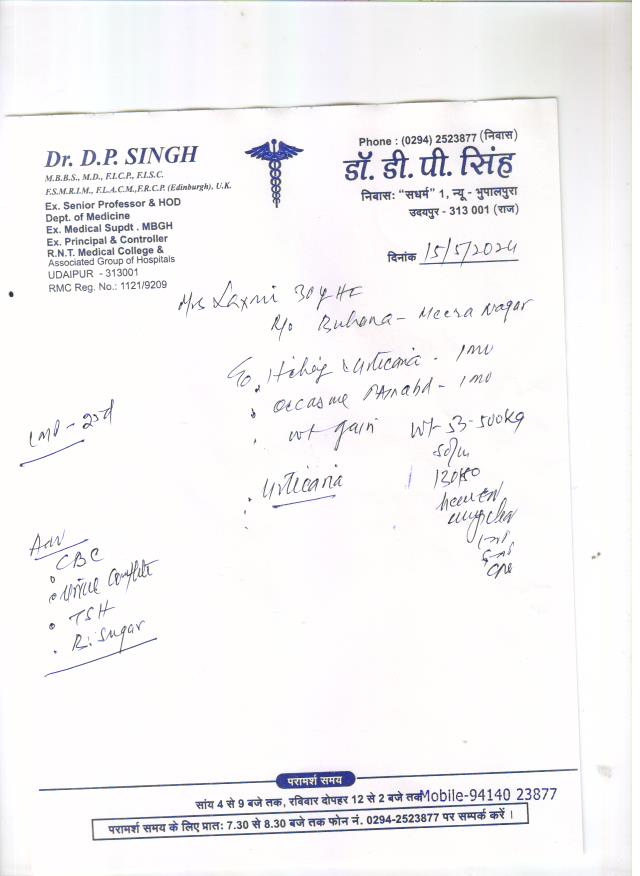 Dr. D.P. SINGH
M.B.B.S., M.D., F.I.C.P., F.I.S.C.
F.S.M.R.I.M., F.L.A.C.M.,F.R.C.P. (Edinburgh), U.K.
Ex. Senior Professor & HOD
Dept. of Medicine
Ex. Medical Supdt . MBGH
Ex. Principal & Controller
R.N.T. Medical College &
Associated Group of Hospitals
UDAIPUR - 313001
RMC Reg. No.: 1121/9209
Phone : (0294) 2523877 (निवास)
डॉ. डी. पी. सिंह
निवासः "सधर्म" 1, न्यू - भुपालपुरा
उदयपुर - 313 001 (राज)
दिनांक 15/5/2024
Mrs Laxmi 30y
R/o Buhana - Meera Nagar
Itching Urticaria
wt gain
Wt - 53-500kg
LMP - 22d
Urticaria
Adv
CBC
Urine Complete
TSH
B. Sugar
परामर्श समय
सांय 4 से 9 बजे तक, रविवार दोपहर 12 से 2 बजे तक Mobile-94140 23877
परामर्श समय के लिए प्रातः 7.30 से 8.30 बजे तक फोन नं. 0294-2523877 पर सम्पर्क करें ।